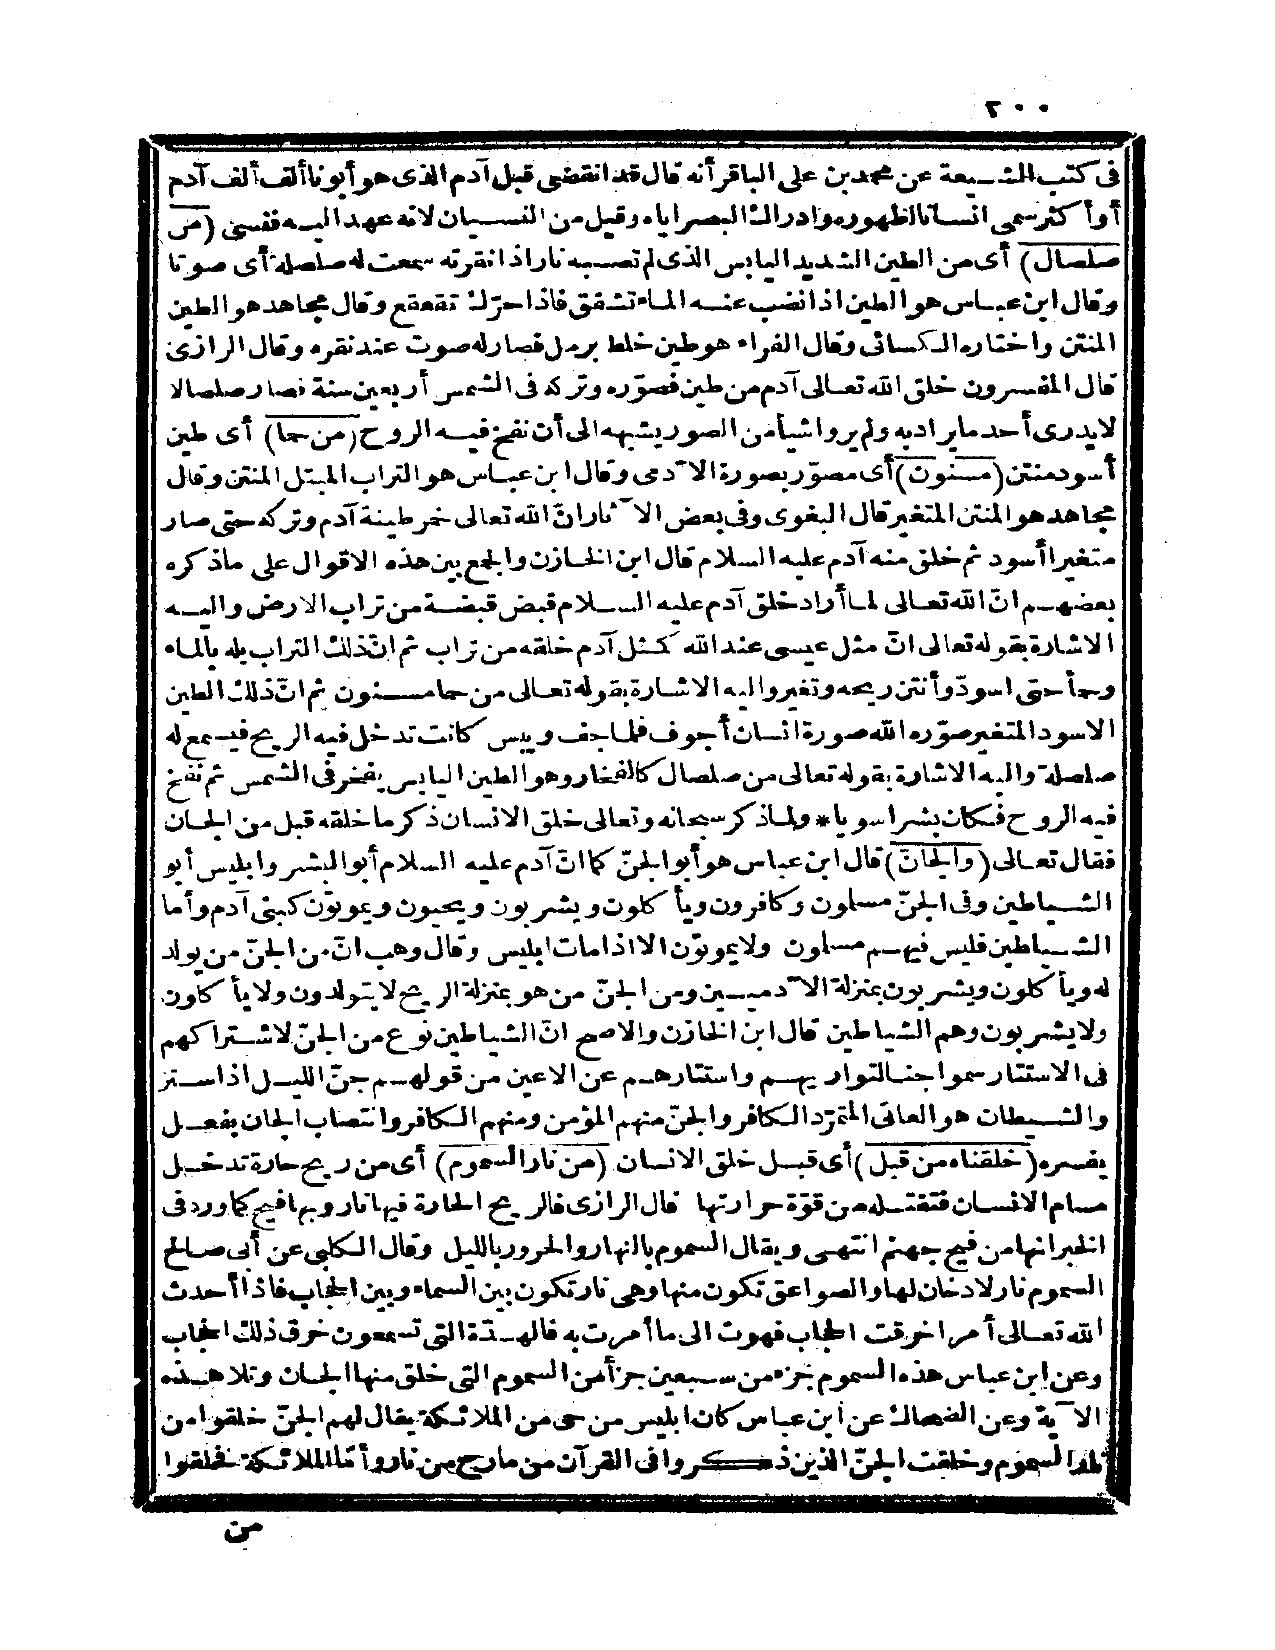 ٢٠٠
فى كتب الشيعة عن محمد بن على الباقر أنه قال قد انقضى قبل آدم الذى هو أبونا ألف ألف آدم
أو أكثر سمى انسانا لظهوره وادراك البصر اياه وقيل من النسيان لانه عهد اليه فنسى (من
صلصال) أى من الطين الشديد اليابس الذى لم تصبه نار اذا نقرته سمعت له صلصلة أى صوتا
وقال ابن عباس هو الطين اذا نضب عنه الماء تشقق فاذا حرّك تقعقع وقال مجاهد هو الطين
المنتن واختاره الكسائى وقال الفراء هو طين خلط برمل فصار له صوت عند نقره وقال الرازى
قال المفسرون خلق الله تعالى آدم من طين فصوّره وتركه فى الشمس أربعين سنة فصار صلصالا
لا يدرى أحد ما يراد به ولم يروا شيأ من الصور يشبهه الى أن نفخ فيه الروح (من حما) أى طين
أسود منتن (مسنون) أى مصوّر بصورة الآدمى وقال ابن عباس هو التراب المبتل المنتن وقال
مجاهد هو المنتن المتغير قال البغوى وفى بعض الآثار انّ الله تعالى خمر طينة آدم وتركه حتى صار
متغيرا أسود ثم خلق منه آدم عليه السلام قال ابن الخازن والجمع بين هذه الاقوال على ما ذكره
بعضهم انّ الله تعالى لما أراد خلق آدم عليه السلام قبض قبضة من تراب الارض واليه
الاشارة بقوله تعالى انّ مثل عيسى عند الله كمثل آدم خلقه من تراب ثم انّ ذلك التراب بله بالماء
وحمأ حتى اسودّ وأنتن ريحه وتغير واليه الاشارة بقوله تعالى من حما مسنون ثم انّ ذلك الطين
الاسود المتغير صوّره الله صورة انسان أجوف فلما جف ويبس كانت تدخل فيه الريح فيسمع له
صلصلة واليه الاشارة بقوله تعالى من صلصال كالفخار وهو الطين اليابس يفخر فى الشمس ثم نفخ
فيه الروح فكان بشرا سويا * ولما ذكر سبحانه وتعالى خلق الانسان ذكر ما خلقه قبل من الجان
فقال تعالى (والجانّ) قال ابن عباس هو أبو الجنّ كما انّ آدم عليه السلام أبو البشر وابليس أبو
الشياطين وفى الجنّ مسلمون وكافرون ويأكلون ويشربون ويحيون ويموتون كبنى آدم وأما
الشياطين فليس فيهم مسلمون ولا يموتون الا اذا مات ابليس وقال وهب انّ من الجنّ من يولد
له ويأكلون ويشربون بمنزلة الآدميين ومن الجنّ من هو بمنزلة الريح لا يتوالدون ولا يأكلون
ولا يشربون وهم الشياطين قال ابن الخازن والاصح انّ الشياطين نوع من الجنّ لاشتراكهم
فى الاستتار سموا جنا لتواريهم واستتارهم عن الاعين من قولهم جنّ الليل اذا ستر
والشيطان هو العاتى المتمرّد الكافر والجنّ منهم المؤمن ومنهم الكافر وانتصاب الجان بفعل
يفسره (خلقناه من قبل) أى قبل خلق الانسان (من نار السموم) أى من ريح حارة تدخل
مسام الانسان فتقتله من قوّة حرارتها قال الرازى فالريح الحارة فيها نار وبها فيح كما ورد فى
الخبر انها من فيح جهنم انتهى ويقال السموم بالنهار والحرور بالليل وقال الكلبى عن أبى صالح
السموم نار لا دخان لها والصواعق تكون منها وهى نار تكون بين السماء وبين الحجاب فاذا أحدث
الله تعالى أمرا خرقت الحجاب فهوت الى ما أمرت به فالهدة التى تسمعون خرق ذلك الحجاب
وعن ابن عباس هذه السموم جزء من سبعين جزأ من السموم التى خلق منها الجان وتلا هذه
الآية وعن الضحاك عن ابن عباس كان ابليس من حى من الملائكة يقال لهم الجنّ خلقوا من
نار السموم وخلقت الجنّ الذين ذكروا فى القرآن من مارج من نار وأمّا الملائكة فخلقوا
من